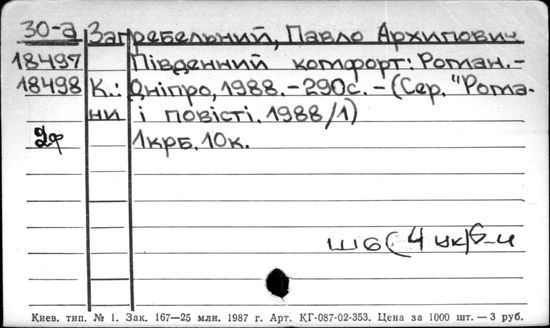 30-а Загребельний, Павло Архипович
18497 Південний комфорт: Роман.-
18498 К.: Дніпро, 1988.-290с.-(Сер. "Рома-
ни і повісті. 1988/1)
2ф 1крб. 10к.
ш6(4ук)6-4
Киев. тип. № 1. Зак. 167—25 млн. 1987 г. Арт. КГ-087-02-353. Цена за 1000 шт. — 3 руб.